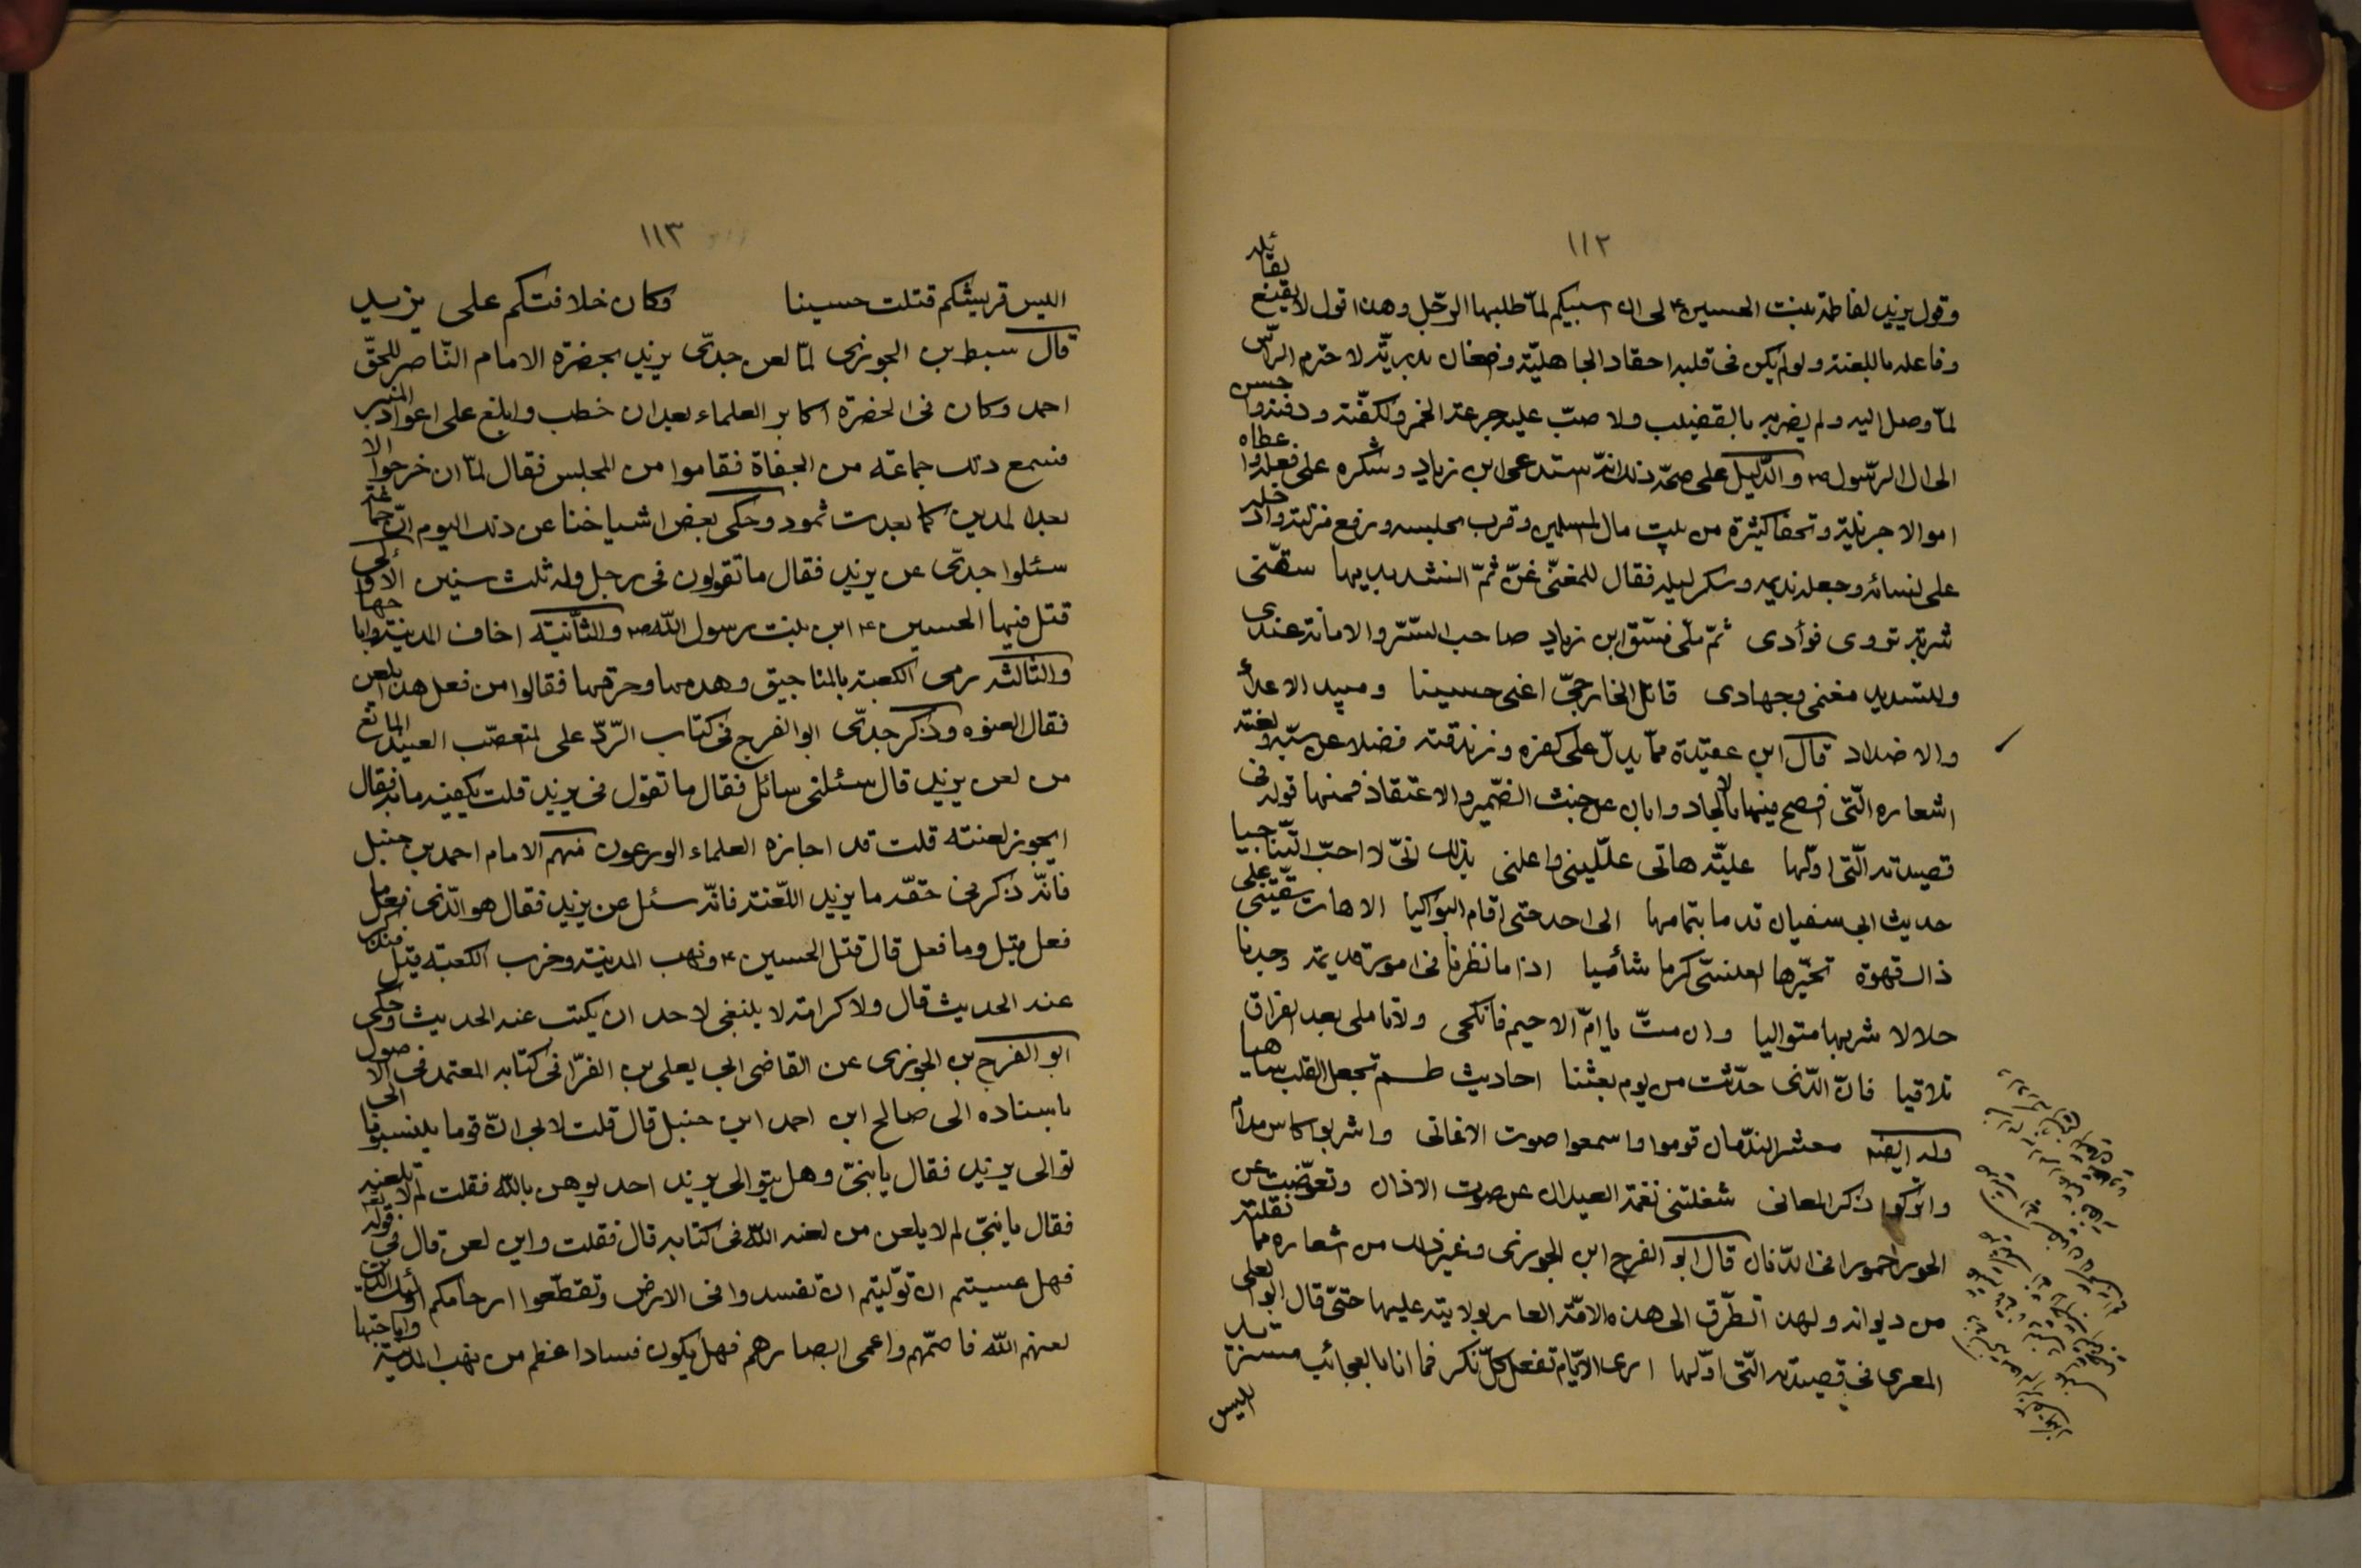 ١١٢
وقول يزيد لفاطمة بنت الحسين ع لى ان اسبيكم لمّا طلبها الرّجل وهذا قول لا يقنع بقائله
وفاعله باللعنة ولو لم يكن فى قلبه احقاد الجاهليّة وضغان بدريّة لاحترم الرأس
لمّا وصل اليه ولم يضربه بالقضيب ولا صبّ عليه جرعة الخمر ولكفّنه ودفنه واحسن
الى ال الرّسول ص والدّليل على صحّة ذلك انّه استدعى ابن زياد وشكره على فعله واعطاه
اموالا جزيلة وتحفا كثيرة من بيت مال المسلمين وقرب مجلسه ورفع منزلته وادخله
على نسائه وجعله نديمه وسكر ليلة فقال للمغنّى غنّ ثمّ انشد بديها سقّنى
شربة تروى فوأدى ثمّ ملّى فسّق ابن زياد صاحب السّرّ والامانة عندى
ولتسديد مغنمى وجهادى قاتل الخارجىّ اعنى حسينا ومبيد الاعداء
والاضداد قال ابن عقيدة ممّا يدلّ على كفره وزندقته فضلا عن سبّه ولعنته
اشعاره الّتى افصح منها بالالحاد وابان عن خبث الضّمير والاعتقاد فمنها قوله فى
قصيدته الّتى اوّلها عليّة هاتى علّلينى واعلنى بذلك انّى لا احبّ التّناجيا
حديث ابى سفيان قدما بتمامها الى احد حتى اقام البواكيا الا هات سقّينى على
ذاك قهوة تخيّرها العنسىّ كرما شأميا اذا ما نظرنا فى امور قديمة وجدنا
حلالا شربها متواليا وان متّ يا امّ الاحيم فانكحى ولا تاملى بعد الفراق
تلاقيا فانّ الّذى حدّثت من يوم بعثنا احاديث طسم تجعل القلب ساهيا
وله ايضه معشر النّدمان قوموا واسمعوا صوت الاغانى واشربوا كاس مدام
واتركوا ذكر المعانى شغلتنى نغمة العيدان عن صوت الاذان وتعوّضت عن
الحور خمورا فى الدّنان قال ابو الفرج ابن الجوزى وغير ذلك من اشعاره ممّا نقلته
من ديوانه ولهذا تطرّق الى هذه الامّة العار بولايته عليها حتىّ قال ابو العلى
المعرى فى قصيدته الّتى اوّلها ارى الايّام تفعل كلّ نكر فما انا بالعجائب مستزيد
اليس
١١٣
اليس قريشكم قتلت حسينا وكان خلافتكم على يزيد
قال سبط بن الجوزى لمّا لعن جدّى يزيد بحضرة الامام النّاصر للحقّ
احمد وكان فى الحضرة اكابر العلماء بعد ان خطب وابلغ على اعواد المنبر
فسمع ذلك جماعة من الجفاة فقاموا من المجلس فقال لمّا ان خرجوا الا
بعدا لمدين كما بعدت ثمود وحكى بعض اشياخنا عن ذلك اليوم انّ جماعة
سئلوا جدّى عن يزيد فقال ما تقولون فى رجل وله ثلث سنين الاولى
قتل فيها الحسين ع ابن بنت رسول اللّه ص والثّانية اخاف المدينة واباحها
والثالثة رمى الكعبة بالمناجيق وهدمها وحرقها فقالوا من فعل هذا يلعن
فقال العنوه وذكر جدّى ابو الفرج فى كتاب الرّدّ على المتعصّب العنيد المانع
من لعن يزيد قال سئلنى سائل فقال ما تقول فى يزيد قلت يكفيه ما به فقال
ايجوز لعنته قلت قد اجازه العلماء الورعون منهم الامام احمد بن حنبل
فانّه ذكر فى حقّه ما يزيد اللّعنة فانّه سئل عن يزيد فقال هو الّذى فعل ما
فعل قيل وما فعل قال قتل الحسين ع ونهب المدينة وخرب الكعبة قيل فنذكر
عند الحديث قال ولا كرامة لا ينبغى لاحد ان يكتب عنه الحديث وحكى
ابو الفرج بن الجوزى عن القاضى ابى يعلى بن الفرّا فى كتابه المعتمد فى الاصول
باسناده الى صالح ابن احمد ابن حنبل قال قلت لابى انّ قوما ينسبونا الى
توالى يزيد فقال يا بنىّ وهل يتوالى يزيد احد يوهن باللّه فقلت لم لا تلعنه
فقال يا بنىّ لم لا يلعن من لعنه اللّه فى كتابه قال فقلت واين لعن قال فى قوله تع
فهل عسيتم ان توّليتم ان تفسدوا فى الارض وتقطّعوا ارحامكم اولئك الذين
لعنهم اللّه فاصمّهم واعمى ابصارهم فهل يكون فسادا اعظم من نهب المدينة واباحتها